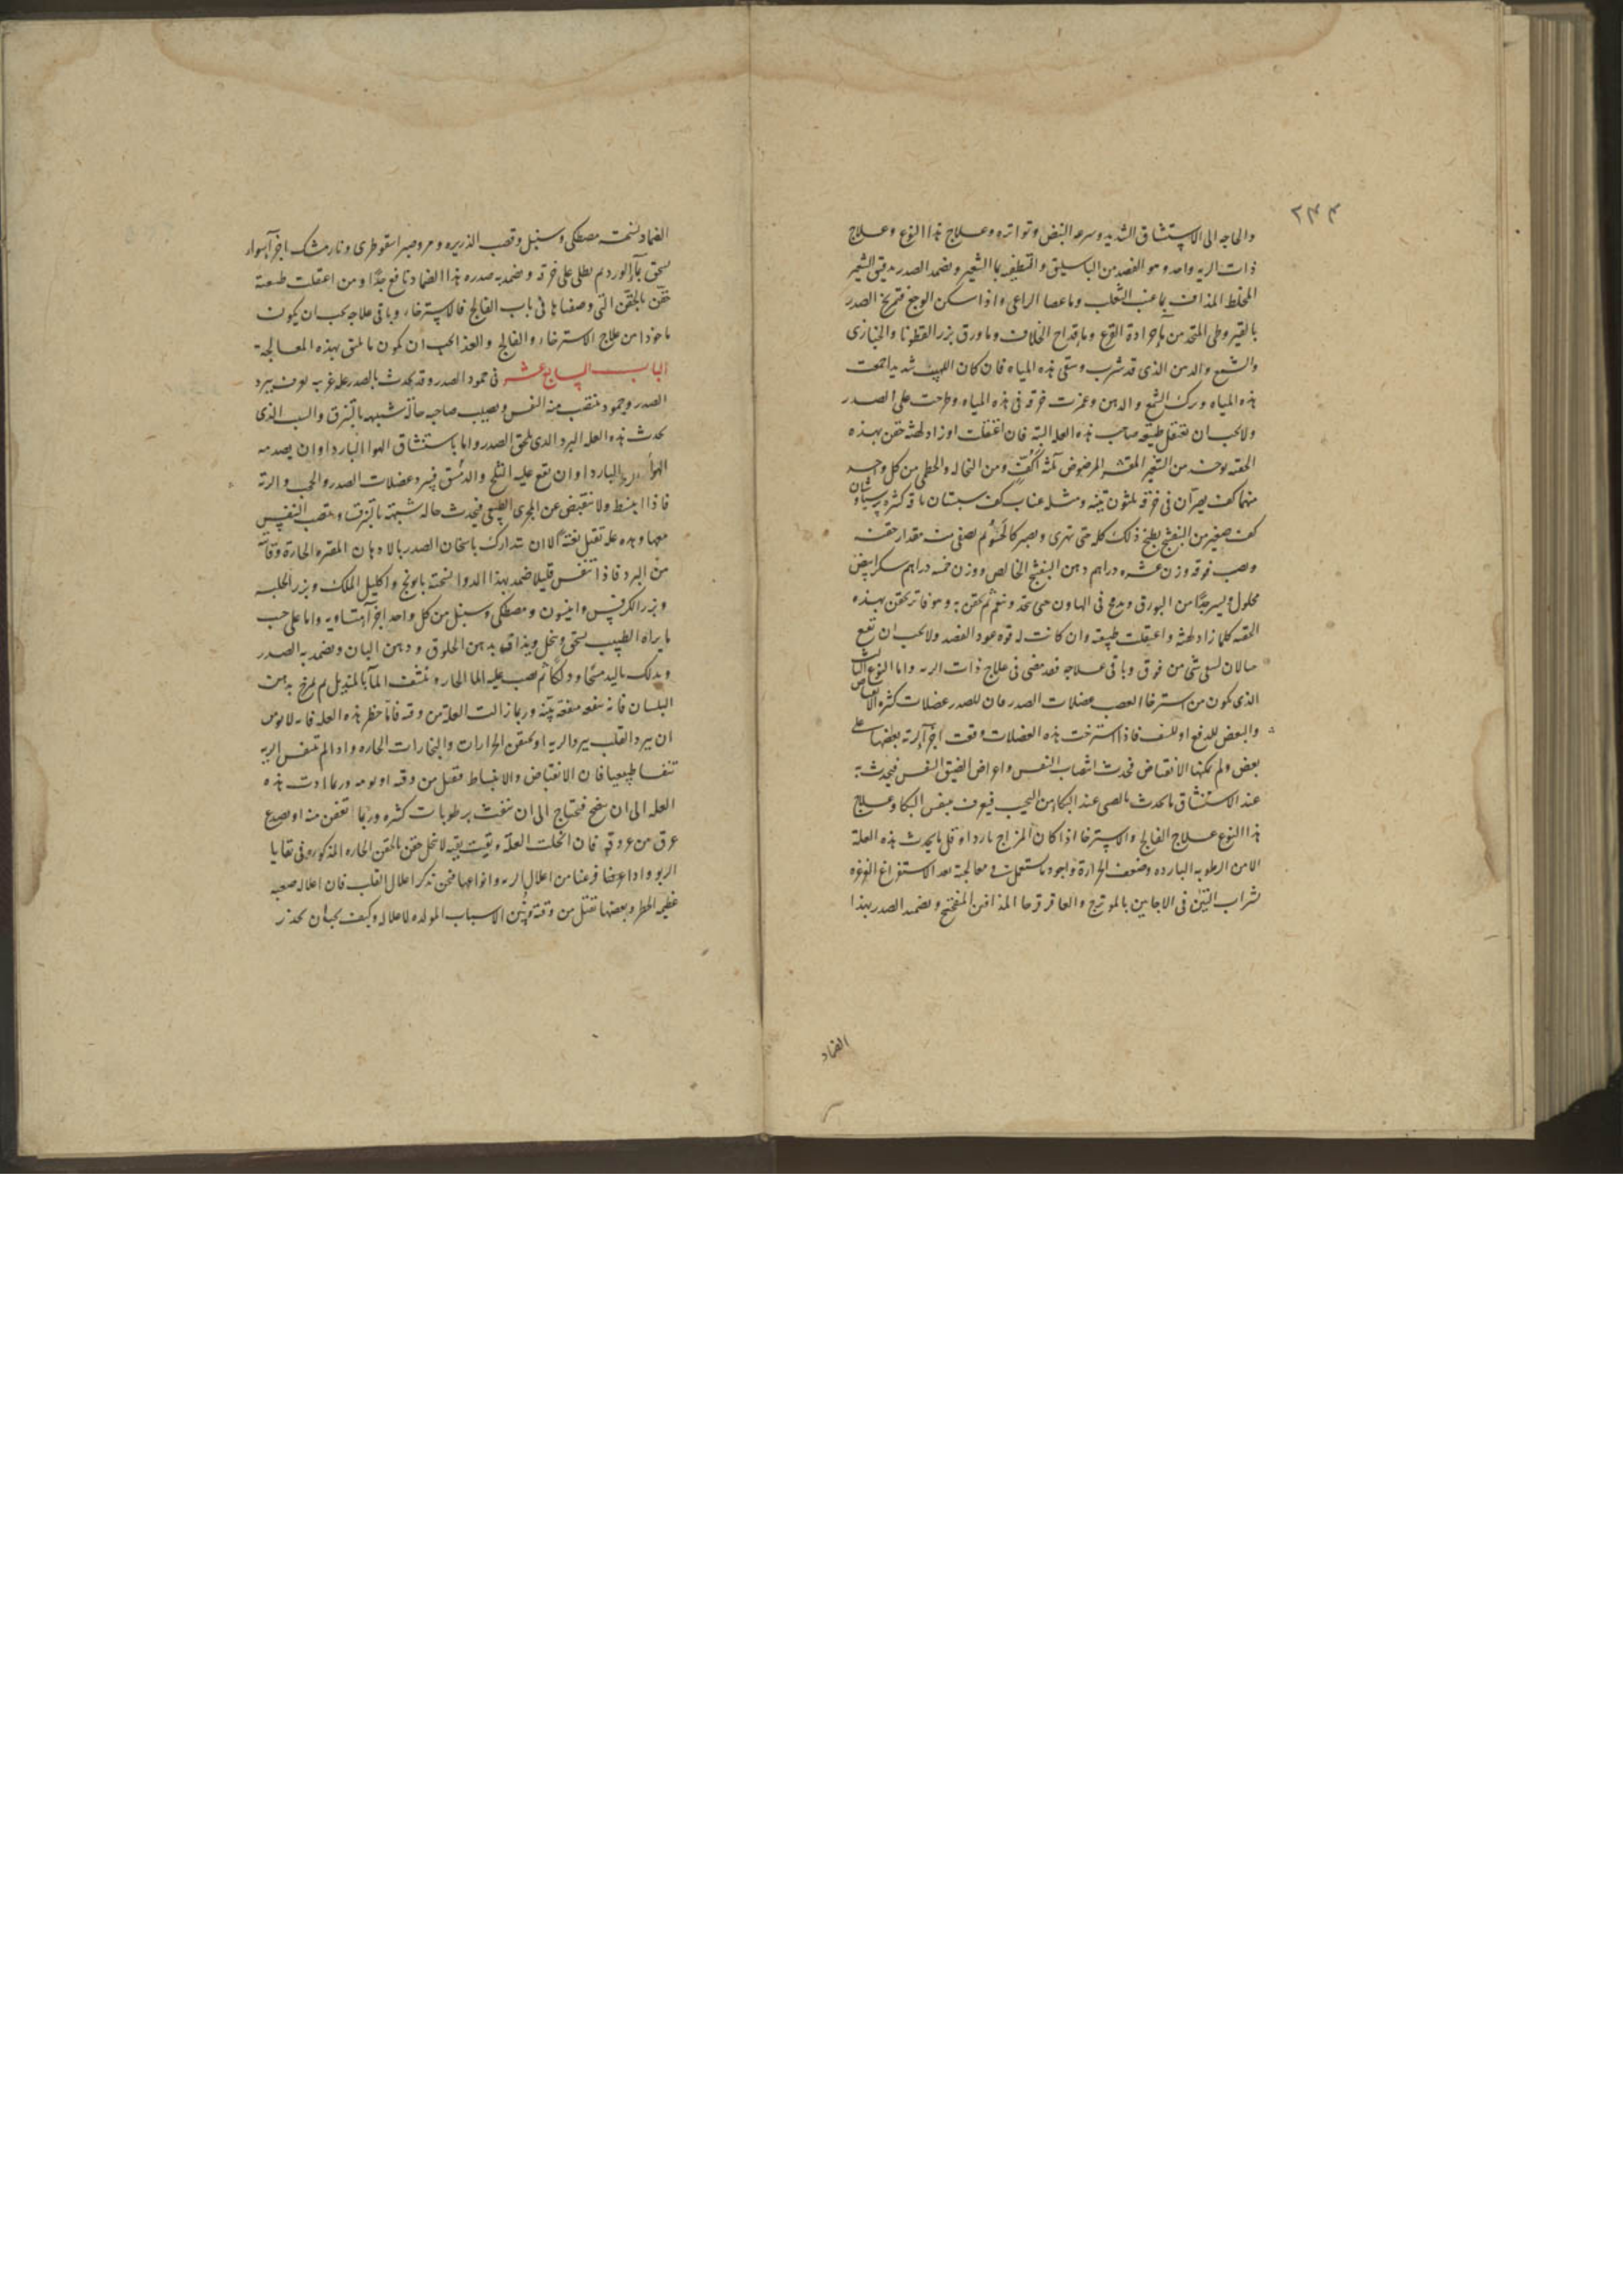 ٢٣٤
والحاجه الى الاستنشاق الشديد وسرعه النبض وتواتره وعلاج هذا النوع وعلاج
ذات الريه واحد وهو الفصد من الباسليق والتطفيه بما الشعير وضمد الصدر بدقيق الشعير
المخلط المذاف بما عنب الثعلب وما عصا الراعى واذا سكن الوجع فتمريخ الصدر
بالقيروطى المتخذ من ماء جرادة القرع وما قداح الخلاف وما ورق بزر القطونا والخبازى
والشمع والدهن الذى قد شرب وسقى هذه المياه فان كان اللهيب شديدا جمعت
هذه المياه وترك الشمع والدهن وغمزت خرقه فى هذه المياه وطرحت على الصدر
ولا يجب ان تعتقل طبيعه صاحب هذه العله البته فان اعتقلت او زاد لهثه حقن بهذه
الحقنه يوخذ من الشعير المقشر المرضوض ثلثه اكف ومن النخاله والخطمى من كل واحد
منهما كف يصران فى خرقه ثلثون تينه ومثله عناب كف سبستان باقه كثره برسياوشان
كف صغير من البنفسج يطبخ ذلك كله حتى يتهرى ويصير كالحسو ثم يصفى منه مقدار حقنه
ويصب فوقه وزن عشره دراهم دهن البنفسج الخالص ووزن خمسه دراهم سكر ابيض
محلول ويسير جدًا من البورق ويدبج فى الهاون حتى يتحد وينعم ثم يحقن به وهو فاتر يحقن بهذه
الحقنه كلما زاد لهثه واعتقلت طبيعته وان كانت له قوه عود الفصد ولا يجب ان تقع
الاسهال بشى من فوق وباقى علاجه فقد مضى فى علاج ذات الريه واما النوع الثالث
الذى يكون من استرخا العصب عضلات الصدر فان للصدر عضلات كثره الانقباض
والبعض للدفع او للنشف فاذا استرخت هذه العضلات وقعت اجزآ الرئة بعضها على
بعض ولم يمكنها الانقباض فحدث انتصاب النفس واعراض الضيق النفس فيحدث به
عند الاستنشاق ما يحدث بالصبى عند البكا من النحيب فيعرف بنفس البكا وعلاج
هذا النوع علاج الفالج والاسترخا اذا كان المزاج باردا وقل ما يحدث هذه العلة
الا من الرطوبه البارده وضعف الحرارة واجود ما استعملت فى معالجته بعد الاستفراغ الغرغره
بشراب التين فى الاجايين بالمويزج والعاقر قرحا المذاف فى المفختج وضمد الصدر بهذا
الضماد
الضماد نسخته مصطكى وسنبل وقصب الذريره ومر وصبر اسقوطرى ونارمشك اجزآ سوا
يسحق بمآ الورد ثم يطلى على خرقه ويضمد به صدره هذا الضماد نافع جدًا ومن اعتقلت طبيعته
حقن بالحقن التى وصفناها فى باب الفالج والاسترخاء وباقى علاجه يجب ان يكون
ماخوذا من علاج الاسترخاء والفالج والغذا يجب ان يكون ما يليق بهذه المعالجة
الباب السابع عشر فى جمود الصدر وقد يحدث بالصدر عله غريبه يعرف ببرد
الصدر وجموده ينتصب منه النفس ويصيب صاحبه حالة شبيهه بالتنزق والسبب الذى
يحدث هذه العله البرد الذى يلحق الصدر واما باستنشاق الهوا البارد او ان يصدمه
الهواء البارد او ان يقع عليه الثلج والدمق فيبرد عضلات الصدر والحجب والرئة
فاذا انبسط ولا ينقبض عن المجرى الطبيعى فيحدث حاله شبيهة بالتنزق وينتصب التنفس
معها وهذه عله تقتل بغتة الا ان تتدارك باسخان الصدر بالادهان المفتره الحارة وقآيته
من البرد فاذا تنفس قليلا ضمد بهذا الدوا نسخته بابونج واكليل الملك وبزر الحلبه
وبزر الكرفس وانيسون ومصطكى وسنبل من كل واحد اجزآ متساويه واما على حسب
ما يراه الطبيب يسحق وينخل ويذاف بدهن الخلوق ودهن البان ويضمد به الصدر
ويدلك باليد مسحًا ودلكًا ثم يصب عليه الما الحار وينشف المآ بالمنديل ثم يمرخ بدهن
البلسان فانه ينفعه منفعه بينه وربما زالت العلة من وقته فانما خطر هذه العله فانه لا يومن
ان يبرد القلب ببرد الريه او يحتقن الحرارات والبخارات الحاره واذا لم تتنفس الريه
تنفسا طبيعيا فان الانقباض والانبساط فقتل من وقته او يومه وربما ادت هذه
العله الى ان ينضح فيحتاج الى ان ينفث برطوبات كثره وربما تعفن منه او يصدع
عرق من عروقه فان انحلت العلة وبقيت بقيه لا تنحل حقن بالحقن الحاره المذكوره فى بقايا
الربو واذا عرضا فرغنا من اعلال الريه وانواعها فنحن نذكر اعلال القلب فان اعلاله صعبه
عظيم الخطر وبعضها تقتل من وقته ونبين الاسباب المولده لاعلاله وكيف يجب ان يحذر